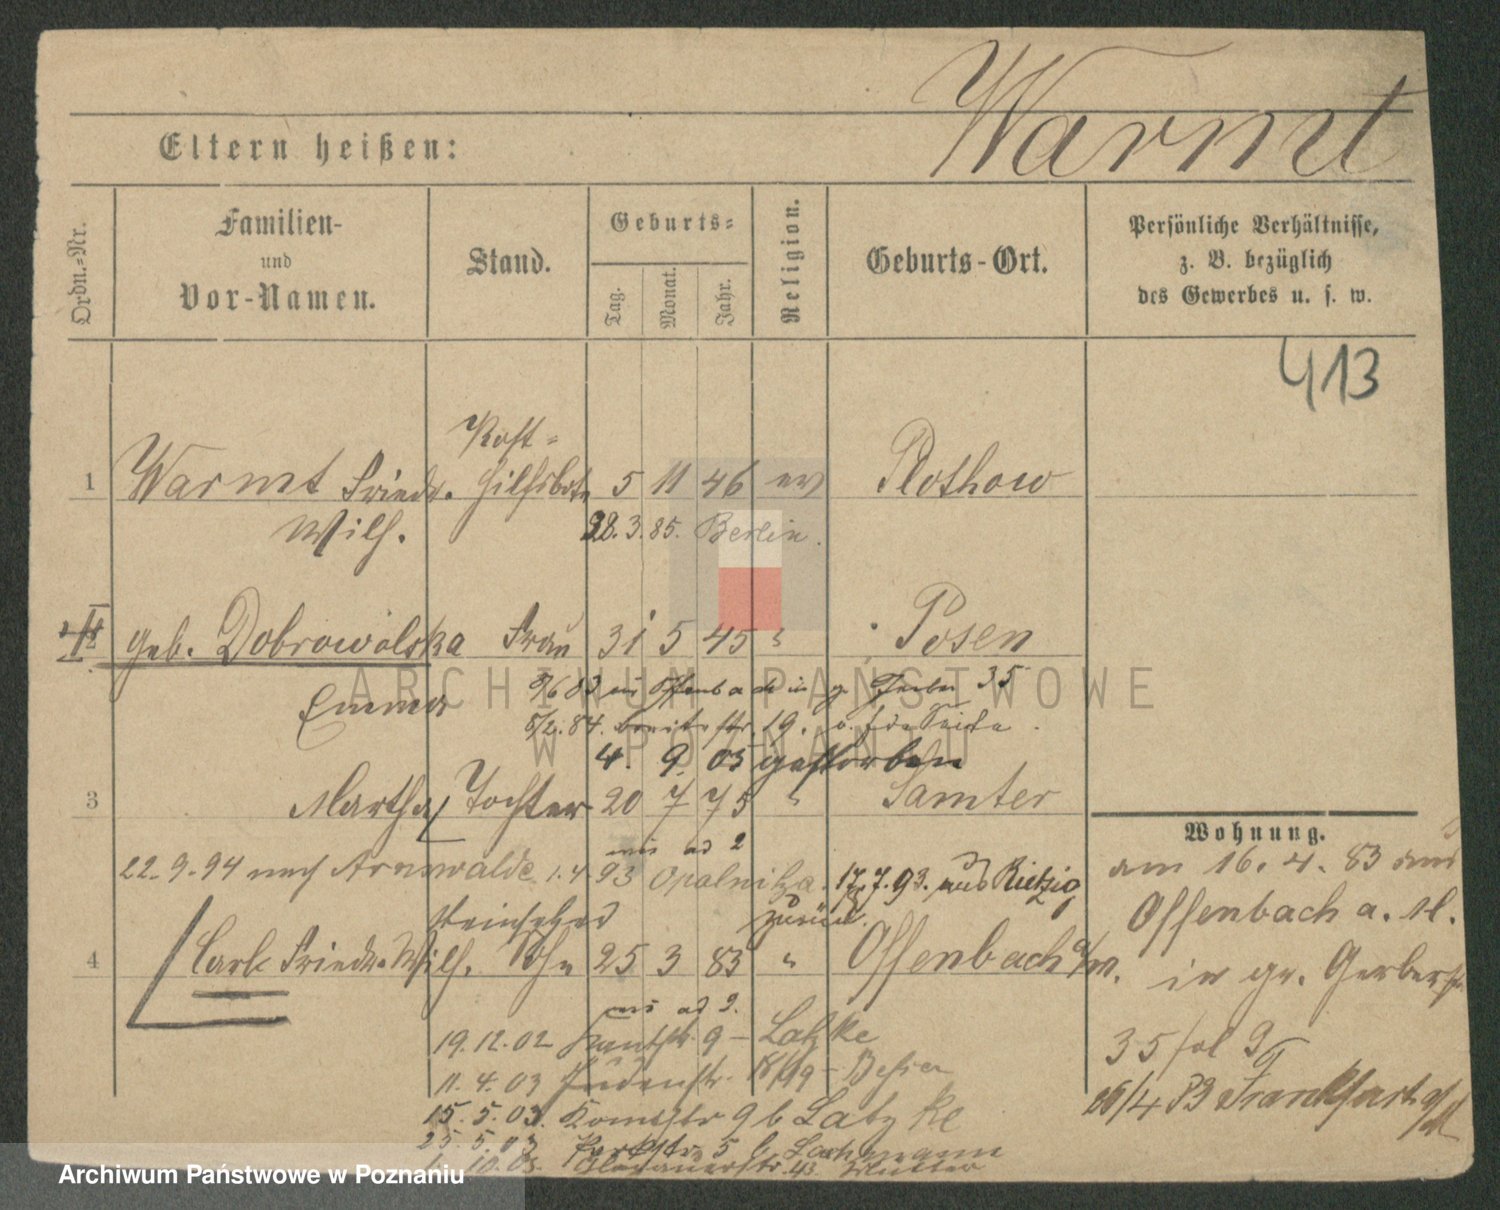 Warmt
Eltern heißen:
Ordn.-Nr.
Familien-
und
Vor-Namen.
Stand.
Geburts-
Tag.
Monat.
Jahr.
Religion.
Geburts-Ort.
Persönliche Verhältnisse,
z. B. bezüglich
des Gewerbes u. s. w.
413
Post-
1 Warmt Friedr. Hilfsbote 5 11 46 ev Plothow
Wilh. 28.3.85. Berlin.
geb. Dobrowolska Frau 31 5 45 " Posen
Emma
5/2.84. Breitestr. 19.
4. 9. 05 gestorben
3 Martha Tochter 20 7 75 " Samter
Wohnung.
aus ad 2
22.9.94 nach Arnswalde 1.4.93 Opalnitza. 17.7.93. aus Rietzig
zurück.
am 16.4.83 aus
Offenbach a. M.
4 Carl Friedr. Wilh. Sohn 25 3 83 " Offenbach a/M.
in gr. Gerberstr
aus ad 2.
19.12.02 9 - Latzke
35
11.4.03 Judenstr. 18/19 -
26/4 83 Frankfurt a/M
15.5.03. 9 b Latzke
25.5.03 5 b Lachmann
1.10.03. 43.
ARCHIWUM PAŃSTWOWE
W POZNANIU
Archiwum Państwowe w Poznaniu